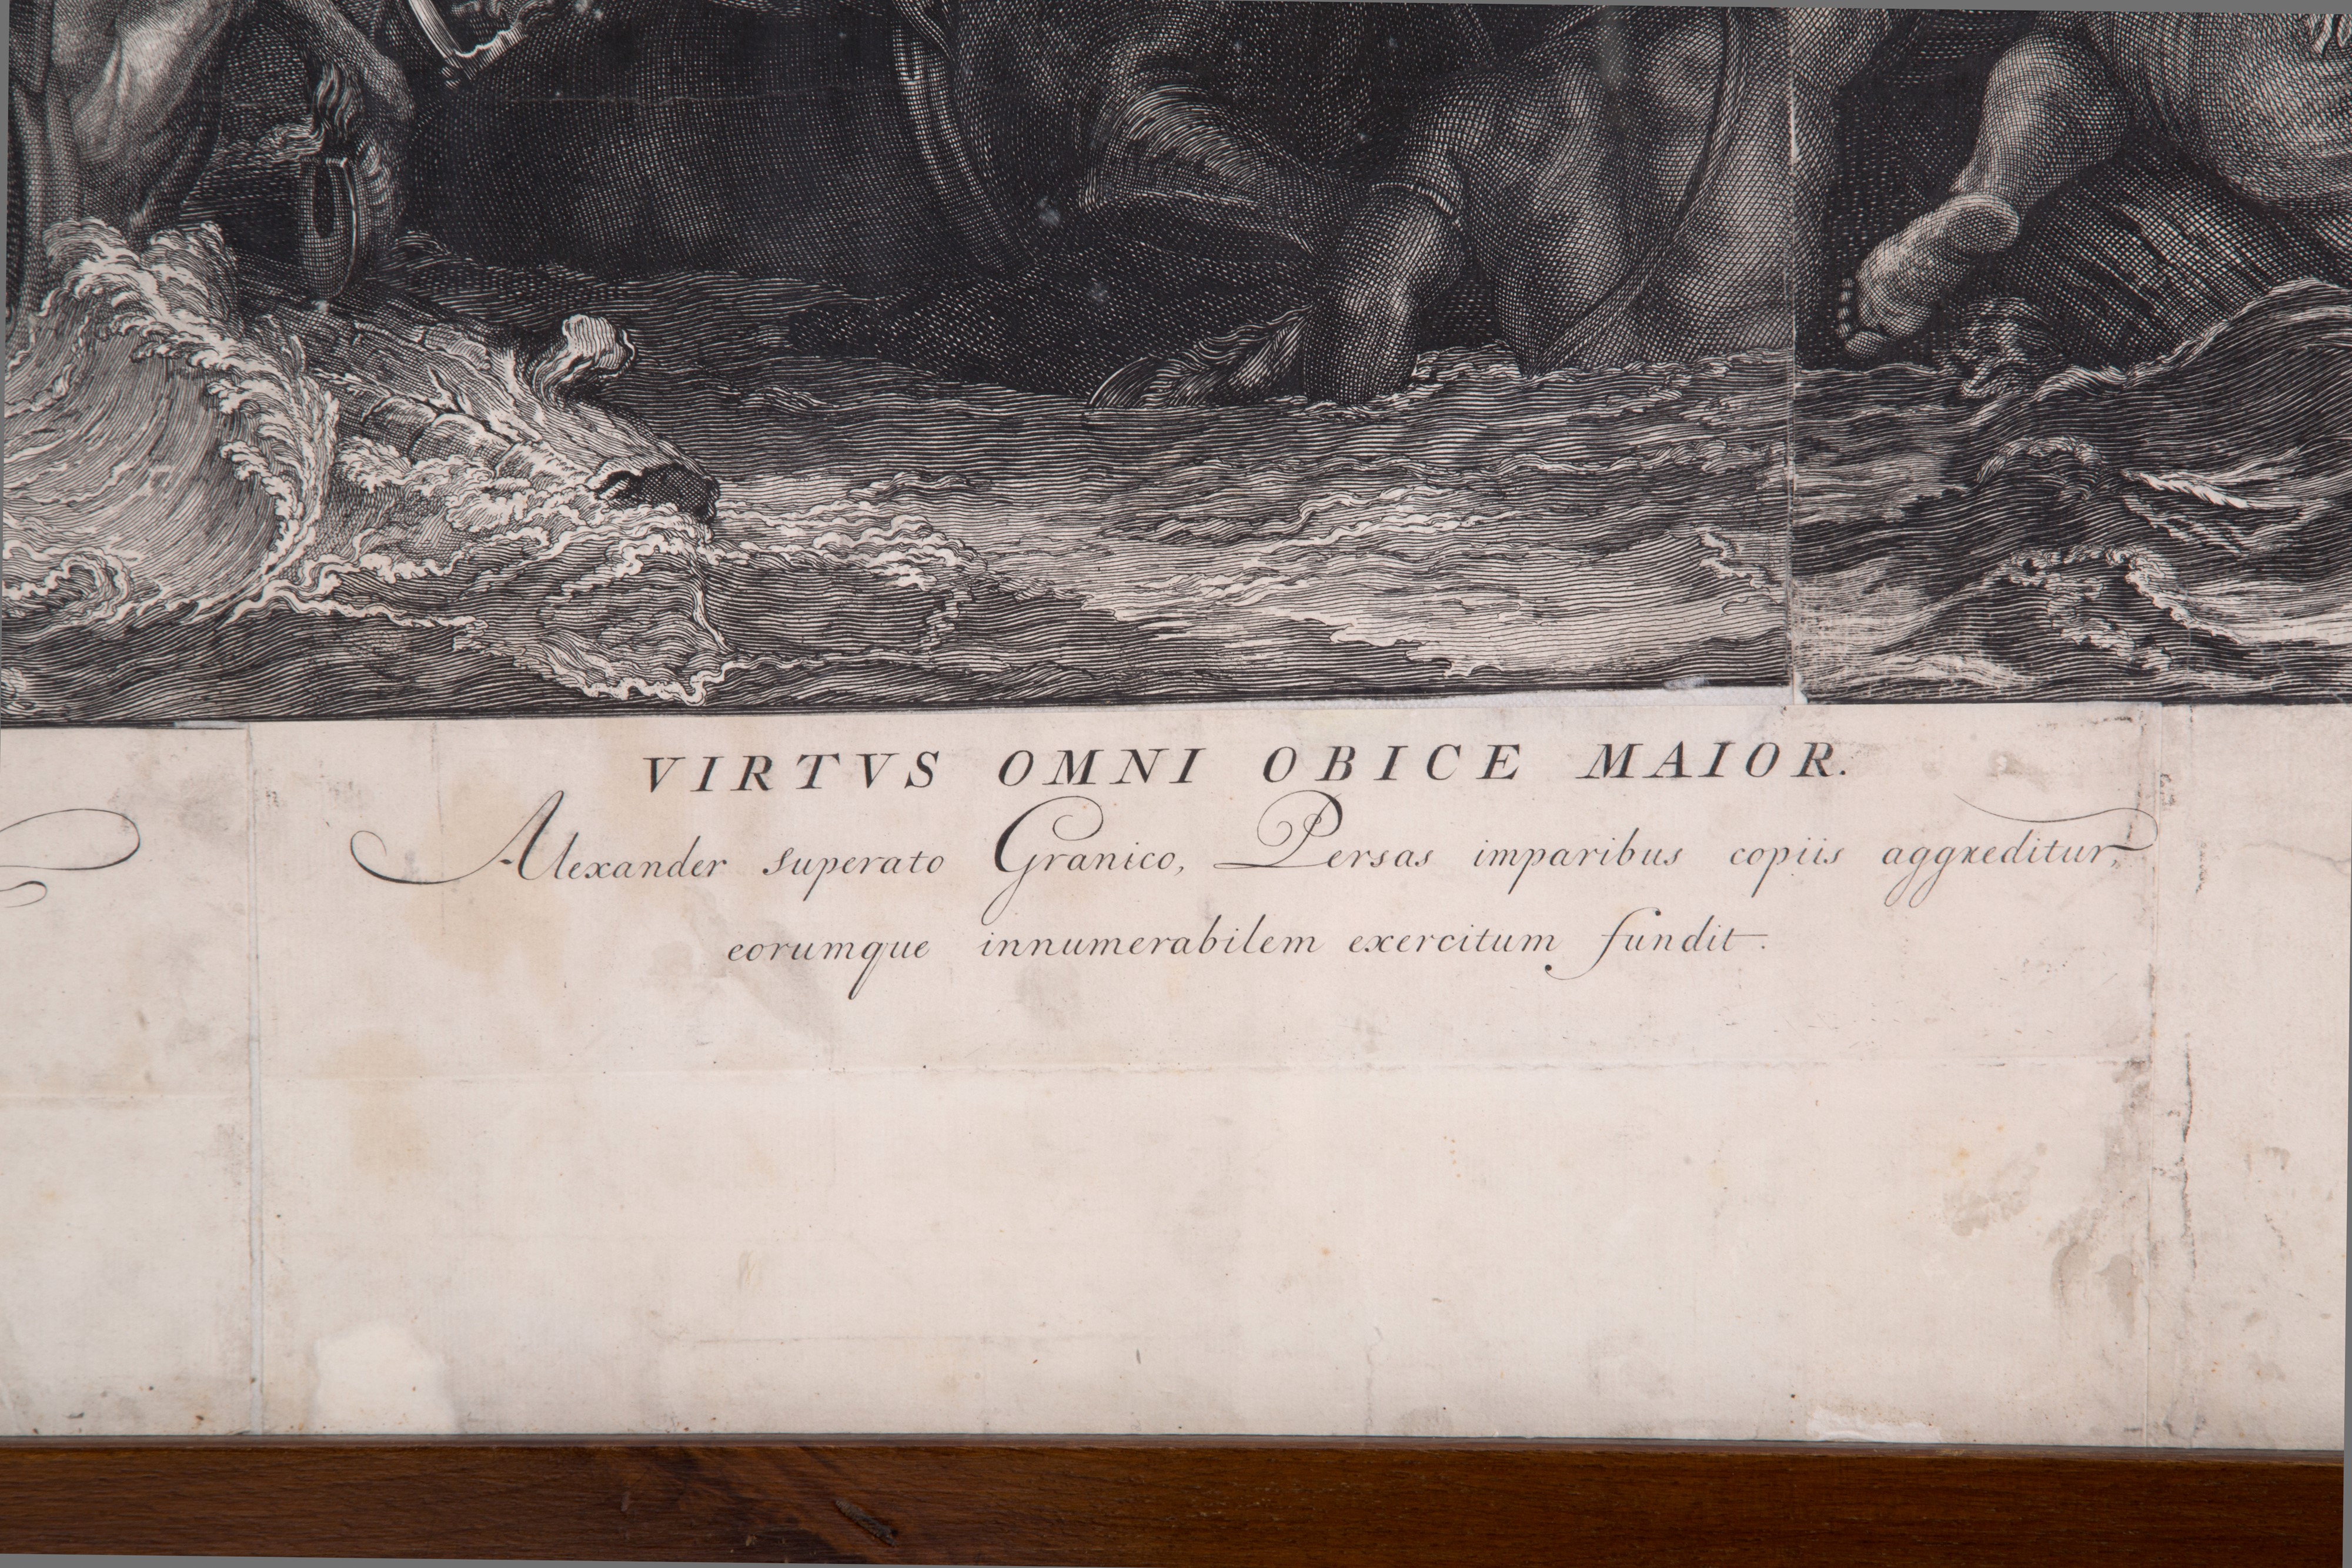 VIRTVS OMNI OBICE MAIOR.
Alexander superato Granico, Persas imparibus copiis aggreditur,
eorumque innumerabilem exercitum fundit.